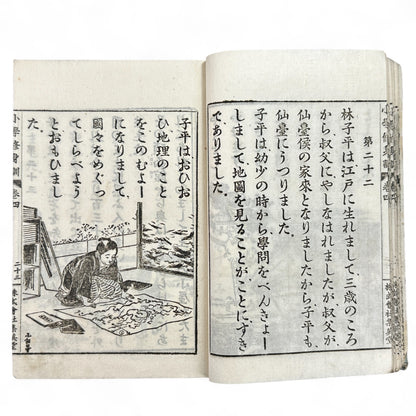 第二十二
林子平は江戸に生れまして、三歳のころ
から叔父にやしなはれましたが叔父が
仙臺侯の家來となりましたから、子平も、
仙臺にうつりました。
子平は幼少の時から、學問をべんきよー
しまして、地圖を見ることがことにすき
でありました。
子平はおひお
ひ地理のこと
をこのむよー
になりまして、
國々をめぐつ
てしらべよう
とおもひまし
た。
小學修身訓 卷四
二十三